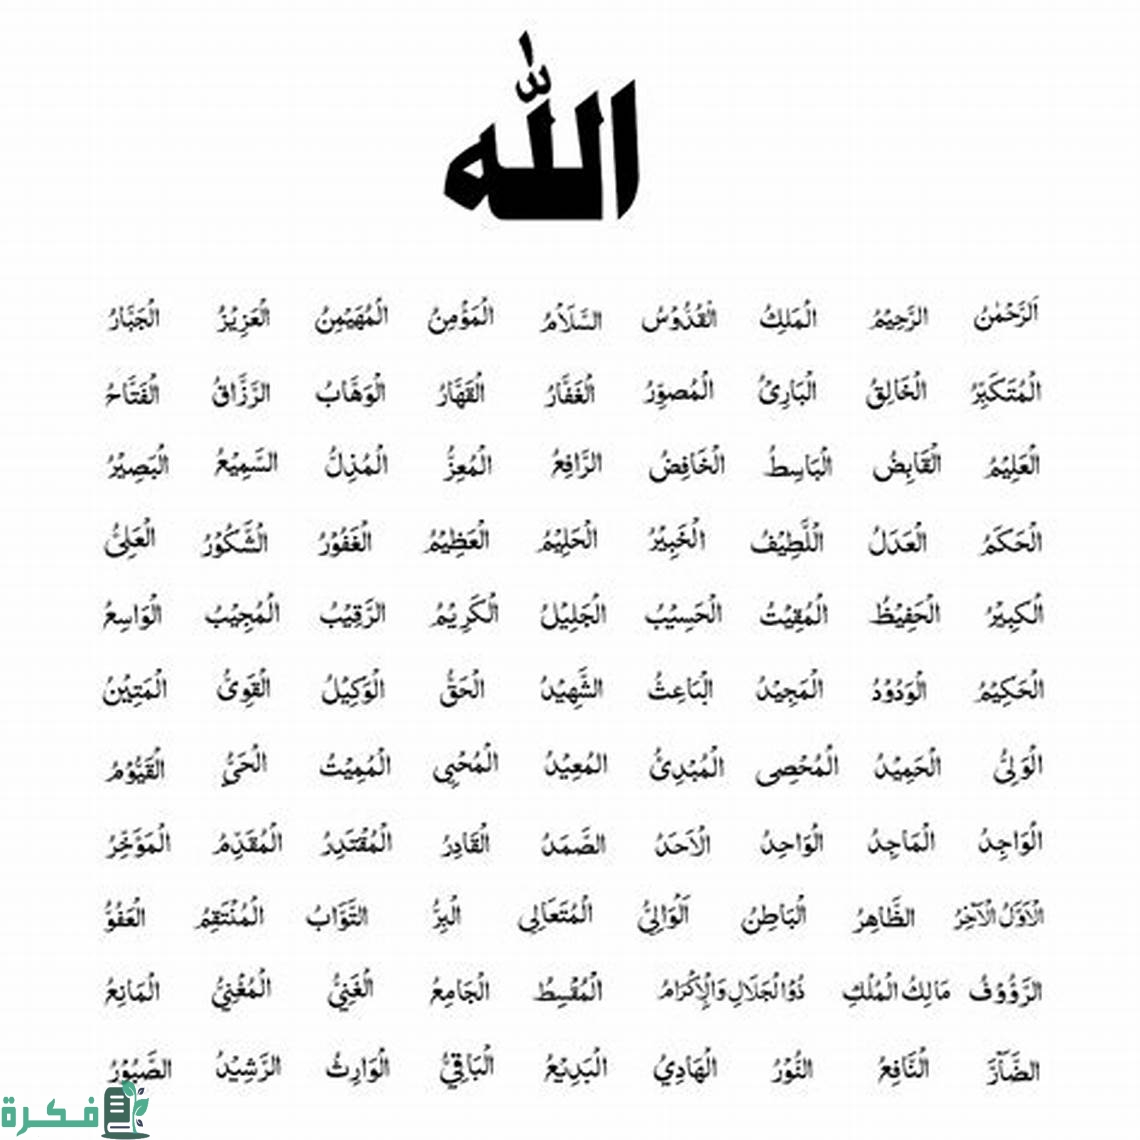 الله
اَلرَّحْمٰنُ الرَّحِيْمُ الْمَلِكُ الْقُدُّوْسُ السَّلَاَمُ الْمَؤْمِنُ الْمُهَيْمِنُ الْعَزِيْزُ الْجَبَّارُ
الْمُتَكَبِّرُ الْخَالِقُ الْبَارِئُ الْمُصوِّرُ الْغَفَّارُ الْقَهَّارُ الْوَهَّابُ الرَّزَّاقُ الْفَتَّاحُ
الْعَلِيْمُ الْقَابِضُ الْبَاسِطُ الْخَافِضُ الرَّافِعُ الْمُعِزُّ الْمُذِلُّ السَّمِيْعُ الْبَصِيْرُ
الْحَكَمُ الْعَدَلُ اللَّطِيْفُ الْخَبِيْرُ الْحَلِيْمُ الْعَظِيْمُ الْغَفُوْرُ الْشَّكُوْرُ الْعَلِىُّ
الْكَبِيْرُ الْحَفِيْظُ الْمُقِيْتُ الْحَسِيْبُ الْجَلِيْلُ الْكَرِيْمُ الرَّقِيْبُ الْمُجِيْبُ الْوَاسِعُ
الْحَكِيْمُ الْوَدُوْدُ الْمَجِيْدُ الْبَاعِثُ الشَّهِيْدُ الْحَقُّ الْوَكِيْلُ الْقَوِىُّ الْمَتِيْنُ
الْوَلِىُّ الْحَمِيْدُ الْمُحْصِى الْمُبْدِئُ المُعِيْدُ الْمُحْيِى الْمُمِيْتُ الْحَىُّ الْقَيُّوْمُ
الْوَاجِدُ الْمَاجِدُ الْوَاحِدُ الْاَحَدُ الصَّمَدُ الْقَادِرُ الْمُقْتَدِرُ الْمُقَدِّمُ الْمَؤَخِّرُ
الْاَوَّلُ الْآخِرُ الظَّاهِرُ الْبَاطِنُ اَلْوَالِىُ الْمُتَعَالِى الْبِرُّ التَّوَابُ الْمُنْتَقِمُ الْعَفُوُّ
الرَّؤُوْفُ مَالِكُ الْمُلْكِ ذُوْالْجَلَالِ وَالْإِكْرَامُ الْمُقْسِطُ الْجَامِعُ الْغَنِيُّ الْمُغْنِيُّ الْمَانِعُ
الضَّآرَّ النَّافِعُ النُّوْرُ الْهَادِيُ الْبَدِيْعُ الْبَاقِيُّ الْوَارِثُ الرَّشِيْدُ الصَّبُوْرُ
فكرة